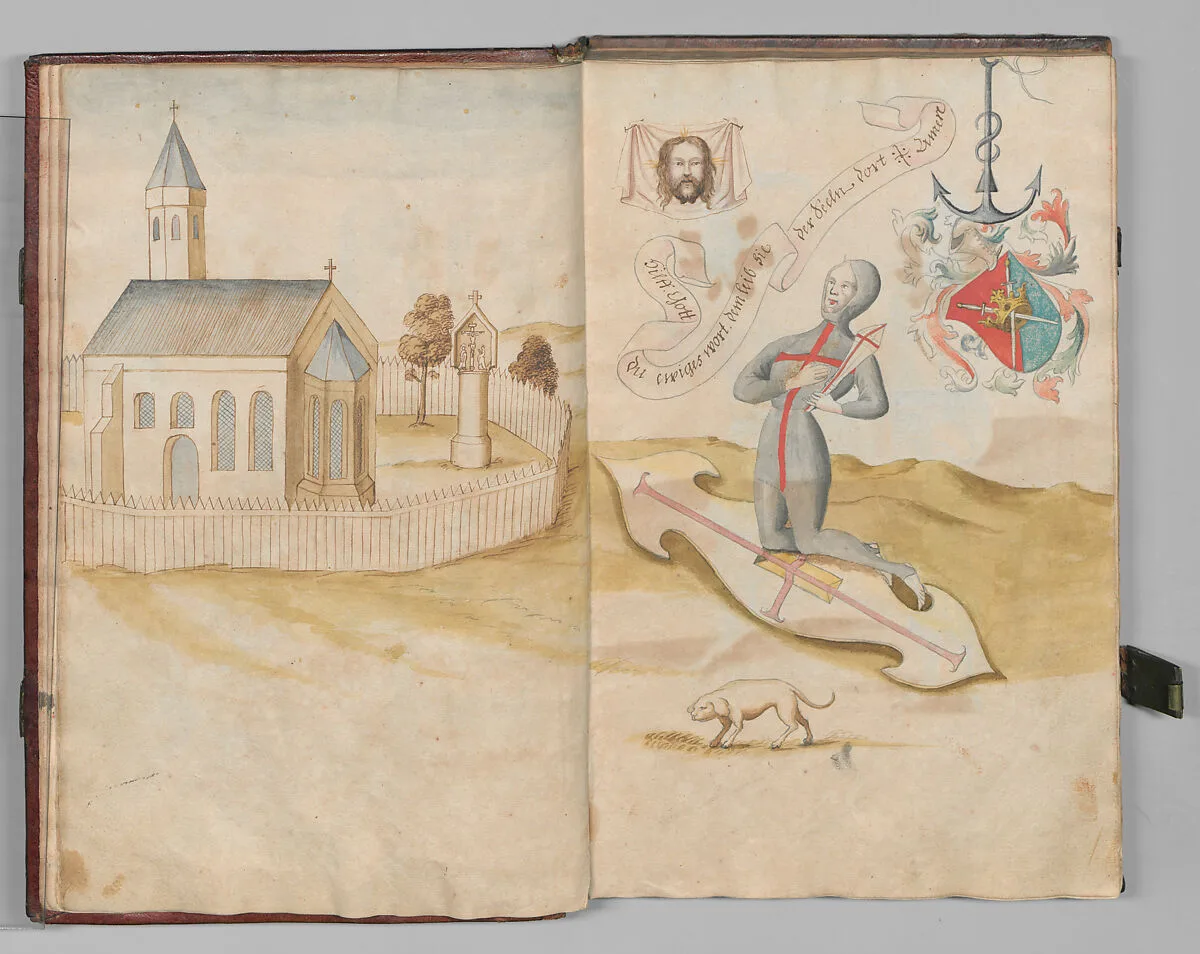 hilff. Gott
du ewiges wort. dem leib hie
der Seeln dort ⁜ Amen